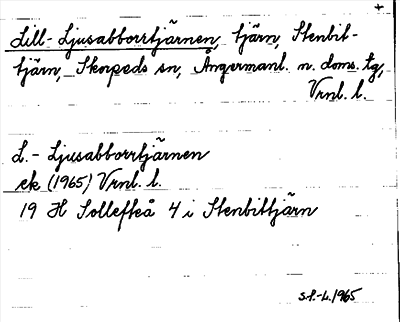 Lill-Ljusabborrtjärnen, tjärn, Stenbit-
tjärn, Skorpeds sn, Ångermanl. n. doms. tg,
Vrnl. l.
L.-Ljusabborrtjärnen
ek (1965) Vrnl. l.
19 H Sollefteå 4 i Stenbittjärn
S.P.-L. 1965